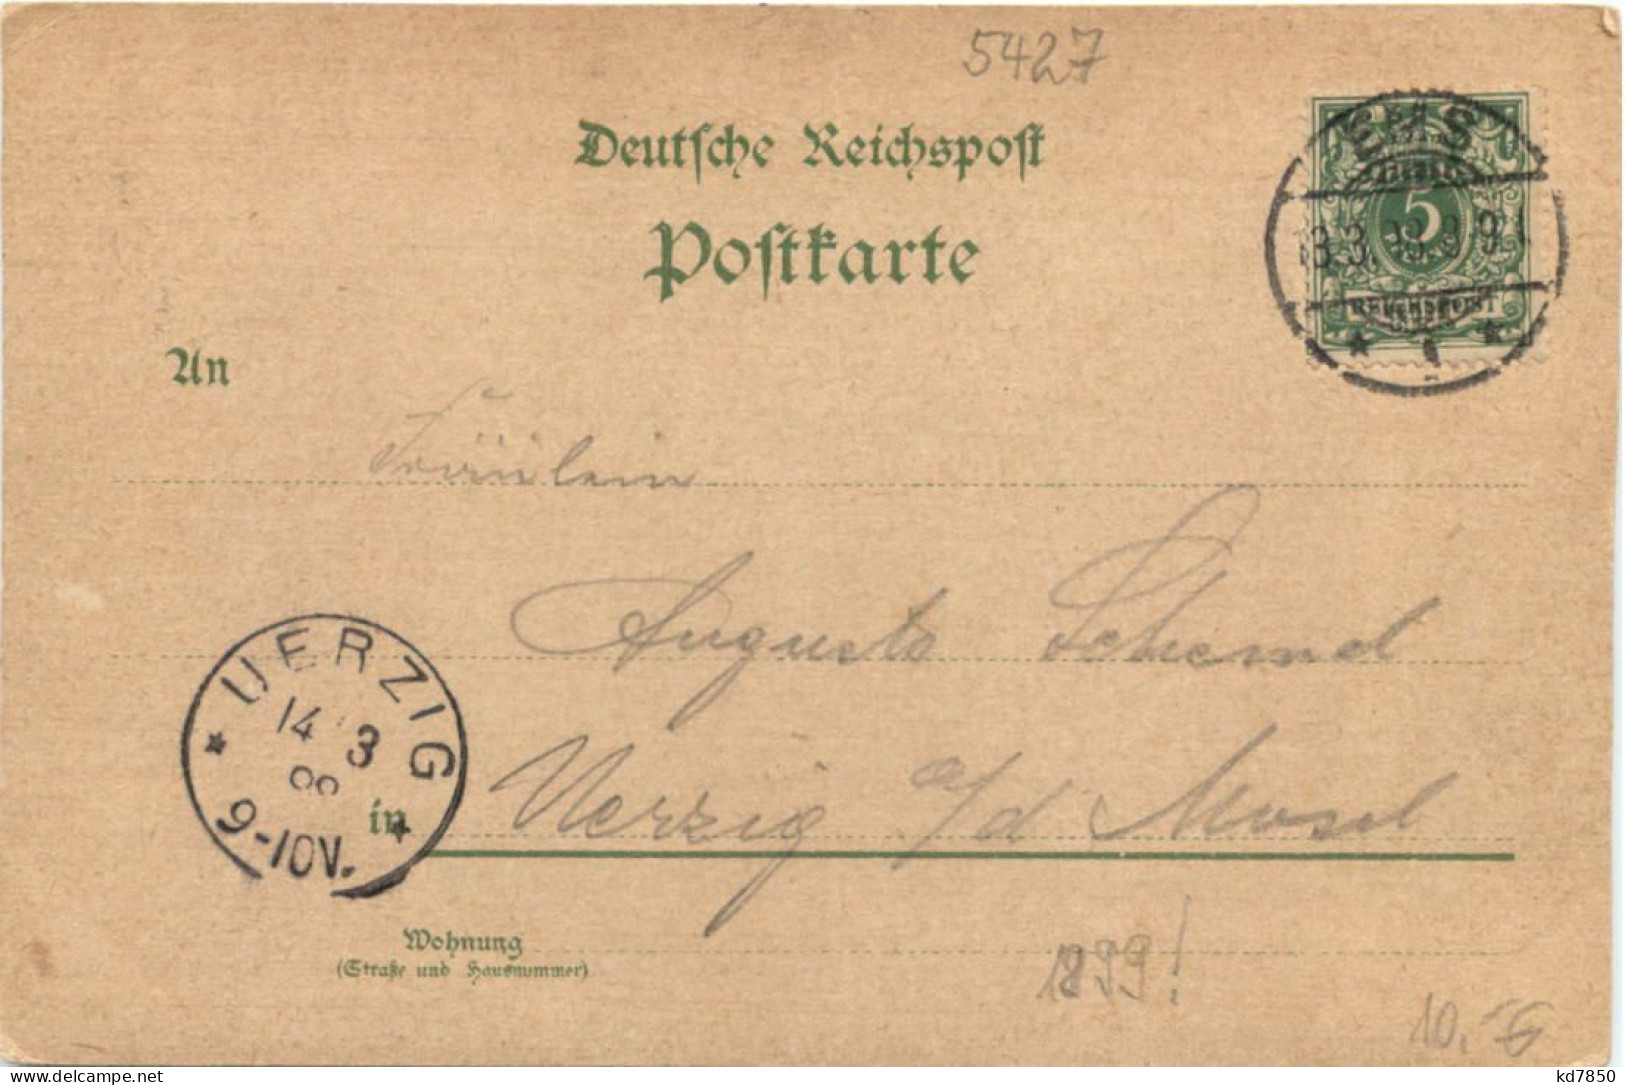 5427
Deutsche Reichspost
Postkarte
EMS
5
REICHSPOST
An
Fräulein
Auguste Schemel
UERZIG
14 3
99
9-10V.
in
Uerzig a/d Mosel
Wohnung
(Straße und Hausnummer)
1899!
10,-€
www.delcampe.net
kd7850